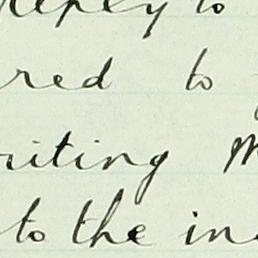 reply to
red to
riting M
to the in